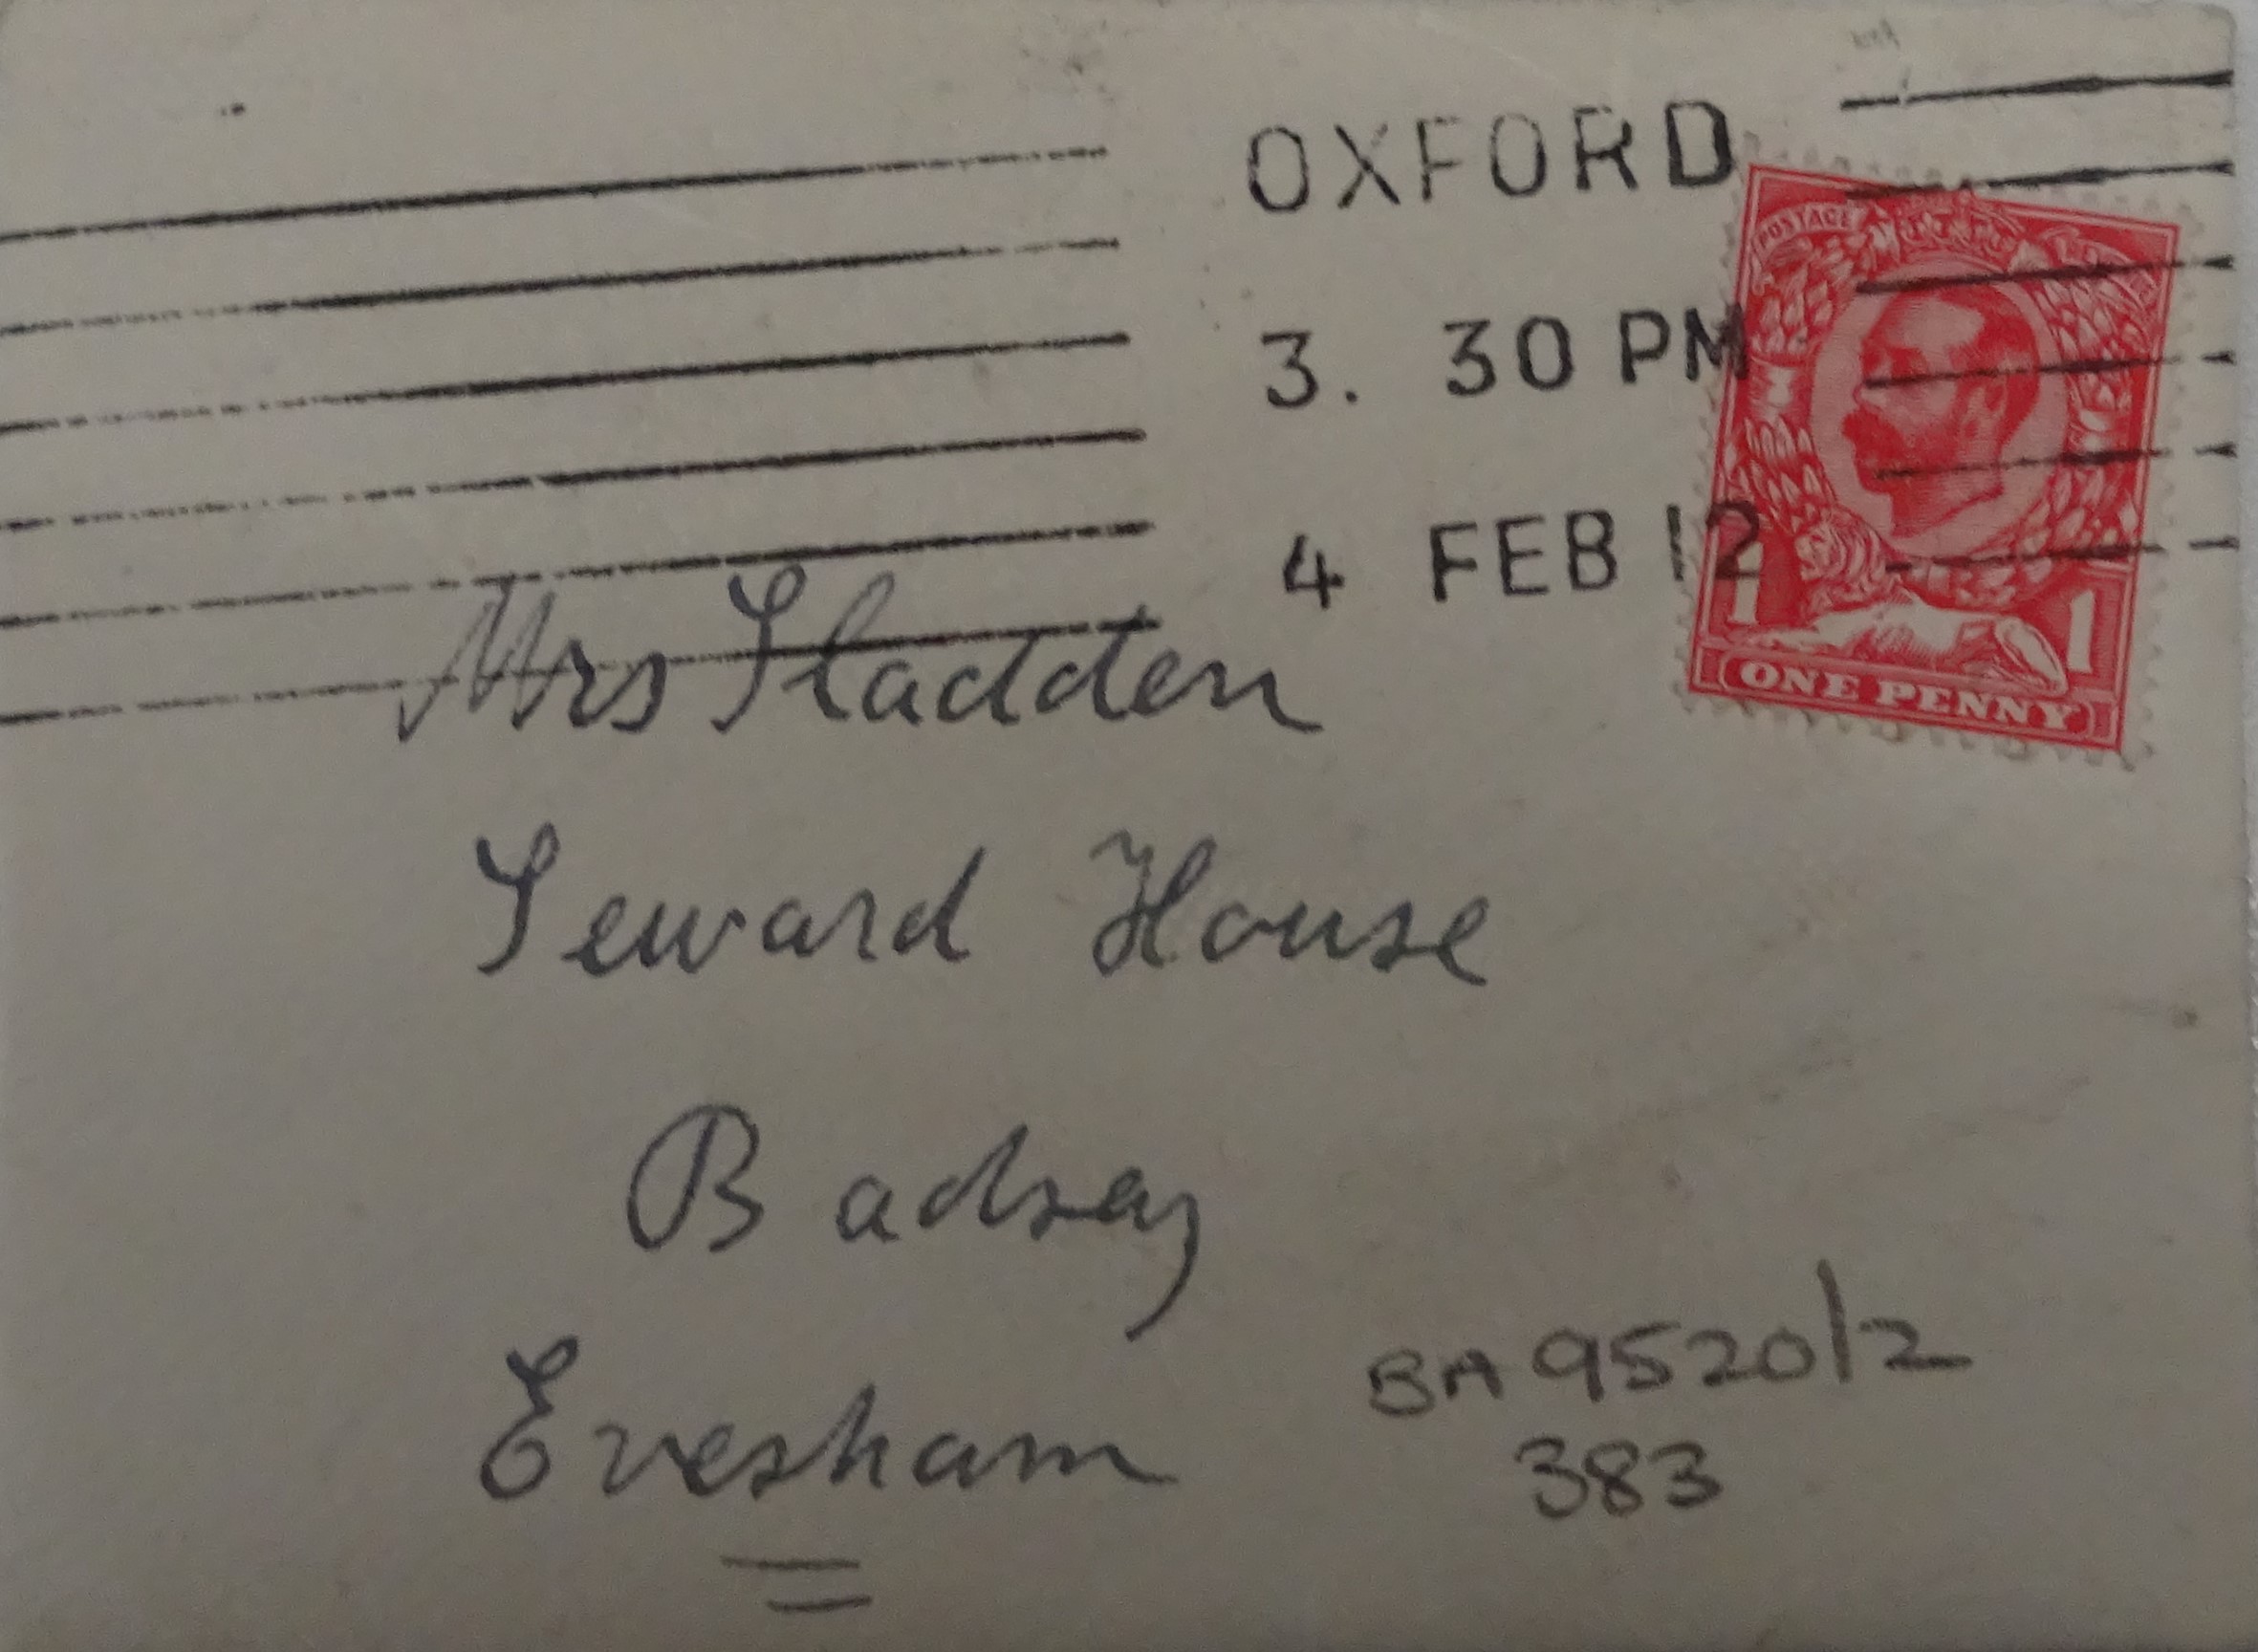 OXFORD
3. 30 PM
4 FEB 12
POSTAGE
1 1
ONE PENNY
Mrs Sladden
Seward House
Badsey
Evesham
BA 9520/2
383